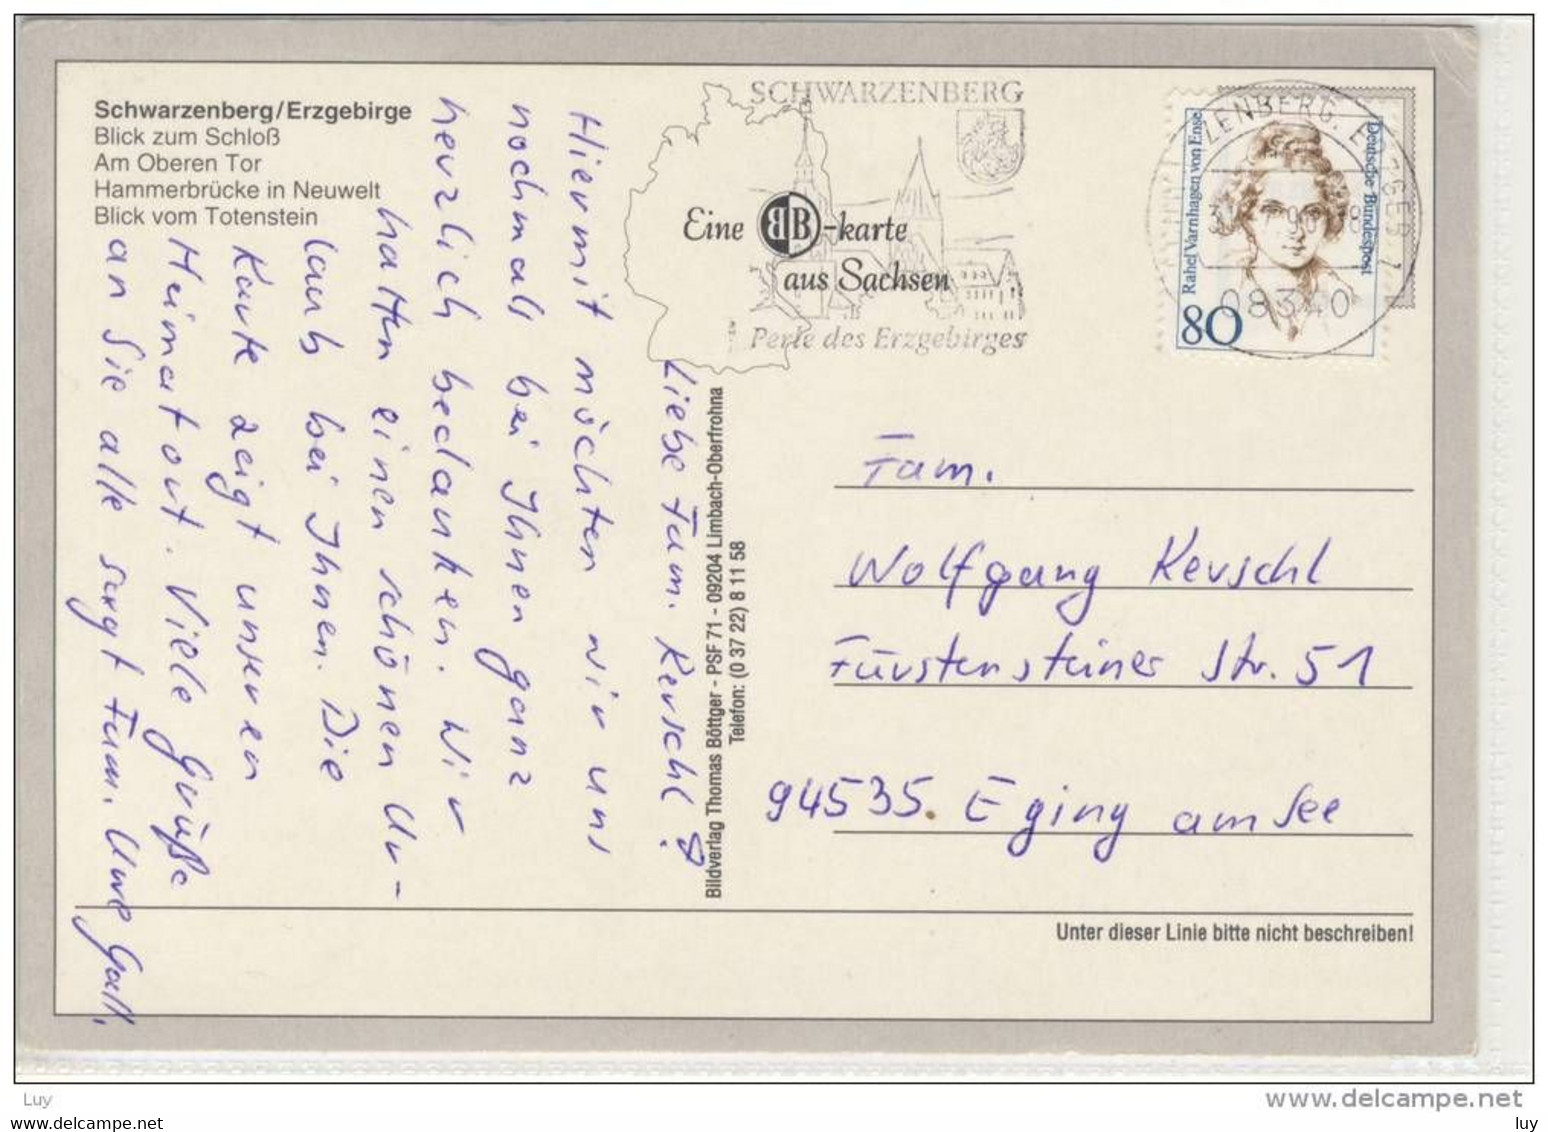 Schwarzenberg/Erzgebirge
Blick zum Schloß
Am Oberen Tor
Hammerbrücke in Neuwelt
Blick vom Totenstein
SCHWARZENBERG
Eine BB-karte
aus Sachsen
Perle des Erzgebirges
ZENBERG, ERZGEB
08340
Rahel Varnhagen von Ense
Deutsche Bundespost
80
Liebe Fam. Kerschl!
Hiermit möchten wir uns
nochmals bei Ihnen ganz
herzlich bedanken. Wir
hatten einen schönen Ur-
laub bei Ihnen. Die
Karte zeigt unseren
Heimatort. Viele Grüße
an Sie alle sagt Fam. Uwe Gall.
Bildverlag Thomas Böttger - PSF 71 - 09204 Limbach-Oberfrohna
Telefon: (0 37 22) 8 11 58
Fam.
Wolfgang Kerschl
Fürstensteiner Str. 51
94535. Eging am See
Unter dieser Linie bitte nicht beschreiben!
Luy
www.delcampe.net